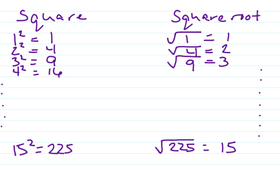 Square
1² = 1
2² = 4
3² = 9
4² = 16
15² = 225
Square root
√1 = 1
√4 = 2
√9 = 3
√225 = 15